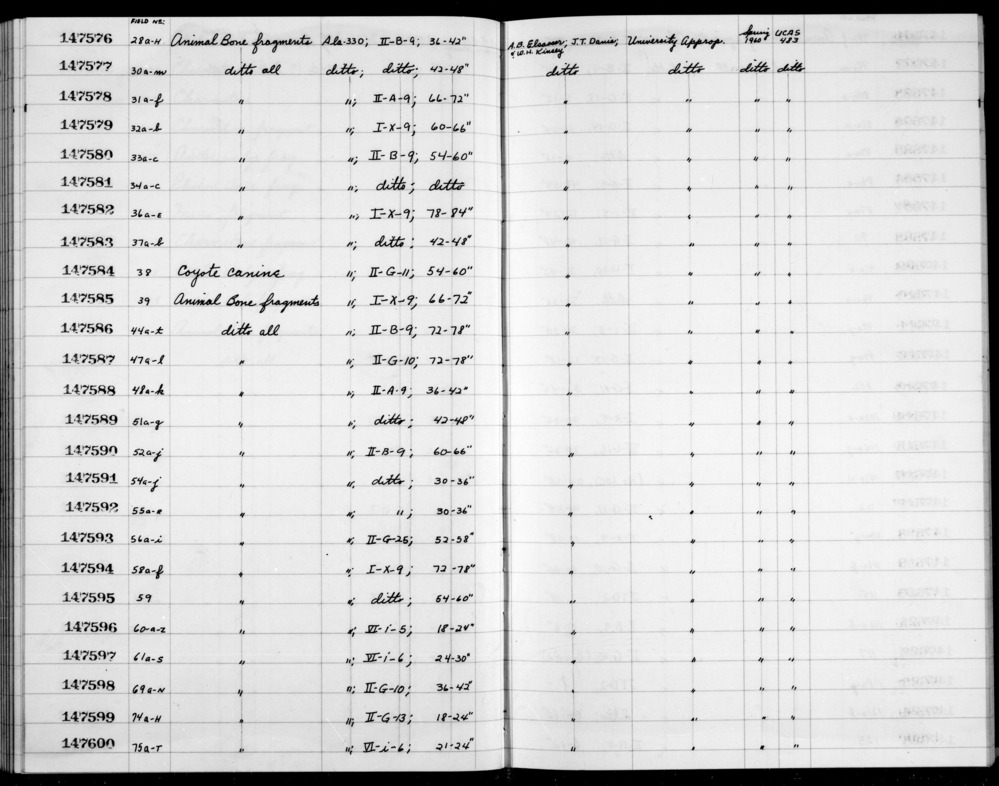 FIELD NO:
147576 28a-H Animal Bone fragments Ala-330; II-B-9; 36-42" A.B. Elsasser, J.T. Davis, & W.H. Kinsey University Approp. Spring 1960 UCAS 483
147577 30a-m ditto all ditto; ditto; 42-48" ditto ditto ditto ditto
147578 31a-f " "; II-A-9; 66-72" " " " "
147579 32a-b " "; I-X-9; 60-66" " " " "
147580 33a-c " "; II-B-9; 54-60" " " " "
147581 34a-c " "; ditto; ditto " " " "
147582 36a-E " "; I-X-9; 78-84" " " " "
147583 37a-b " "; ditto; 42-48" " " " "
147584 38 Coyote canine "; II-G-11; 54-60" " " " "
147585 39 Animal Bone fragments "; I-X-9; 66-72" " " " "
147586 44a-t ditto all "; II-B-9; 72-78" " " " "
147587 47a-l " "; II-G-10; 72-78" " " " "
147588 48a-k " "; II-A-9; 36-42" " " " "
147589 51a-g " "; ditto; 42-48" " " " "
147590 52a-j " "; II-B-9; 60-66" " " " "
147591 54a-j " "; ditto; 30-36" " " " "
147592 55a-e " "; "; 30-36" " " " "
147593 56a-i " "; II-G-25; 52-58" " " " "
147594 58a-f " "; I-X-9; 72-78" " " " "
147595 59 " "; ditto; 54-60" " " " "
147596 60-a-z " "; VI-i-5; 18-24" " " " "
147597 61a-s " "; VI-i-6; 24-30" " " " "
147598 69a-N " "; II-G-10; 36-42" " " " "
147599 74a-H " "; II-G-13; 18-24" " " " "
147600 75a-T " "; VI-i-6; 21-24" " " " "